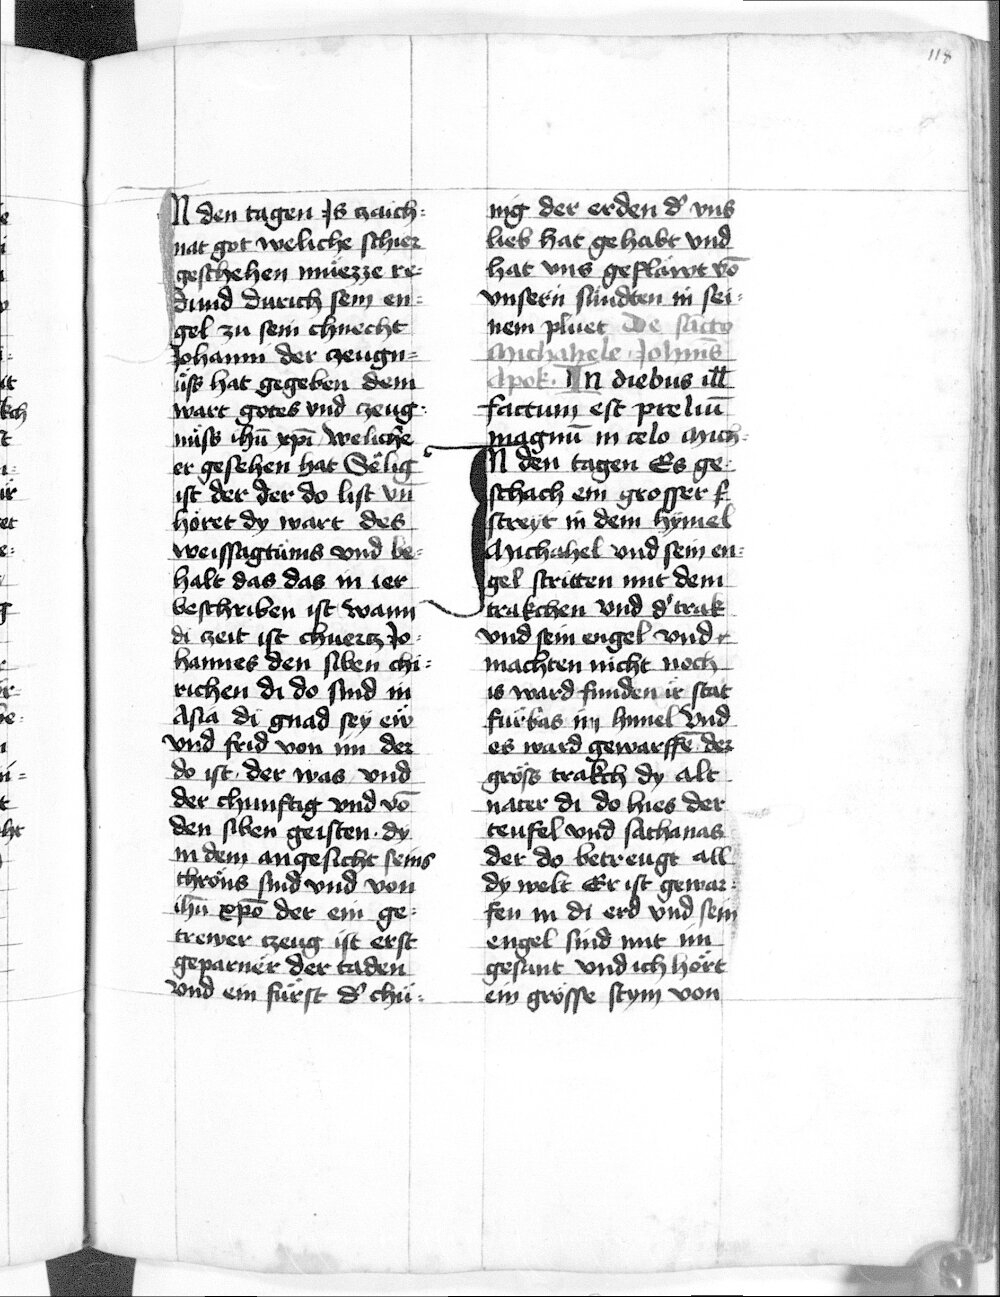 118
IN den tagen Js zaich⸗
nat got weliche schier
geschehen müezze re⸗
dund durich sein en⸗
gel zu sein chnecht
Johanni der czeugn⸗
üss hat gegeben dem
wart gotes vnd czeug⸗
nüss ihū xpī weliche
er gesehen hat Sêlig
ist der der do list vn̄
höret dy wart des
weissagtüms vnd be⸗
halt das das in ier
beschriben ist wann
di czeit ist chuertz Jo⸗
hannes den siben chi⸗
richen di do sind in
Asia di gnad sey eẅ
vnd frid von im der
do ist der was vnd
der chunftig vnd vō
den siben geisten dy
in dem angesicht seins
thröns sind vnd von
ihū xpō der ein ge⸗
trewer czeug ist erst
geparner der taden
vnd ein fürst d' chü⸗
nig der erden d' vns
lieb hat gehabt vnd
hat vns geklärt vō
vnsern sündten in sei⸗
nem pluet De sācto
Michahele Johānis
Apok. IN diebus ill̄
factum est preliū
magnū in celo Mich⸗
IN den tagen Es ge⸗
schach ein grosser
streyt in dem hymel
Michahel vnd sein en⸗
gel stritten mit dem
trakchen vnd d' trak
vnd sein engel vnd
machten nicht noch
is ward funden ir stat
fürbas in himel vnd
es ward gewarffē der
gröss trakch dy alt
nater di do hies der
teufel vnd sathanas
der do betreugt all
dy welt Er ist gewar⸗
fen in di erd vnd sein
engel sind mit im
gesant vnd ich hört
ein grösse stym von